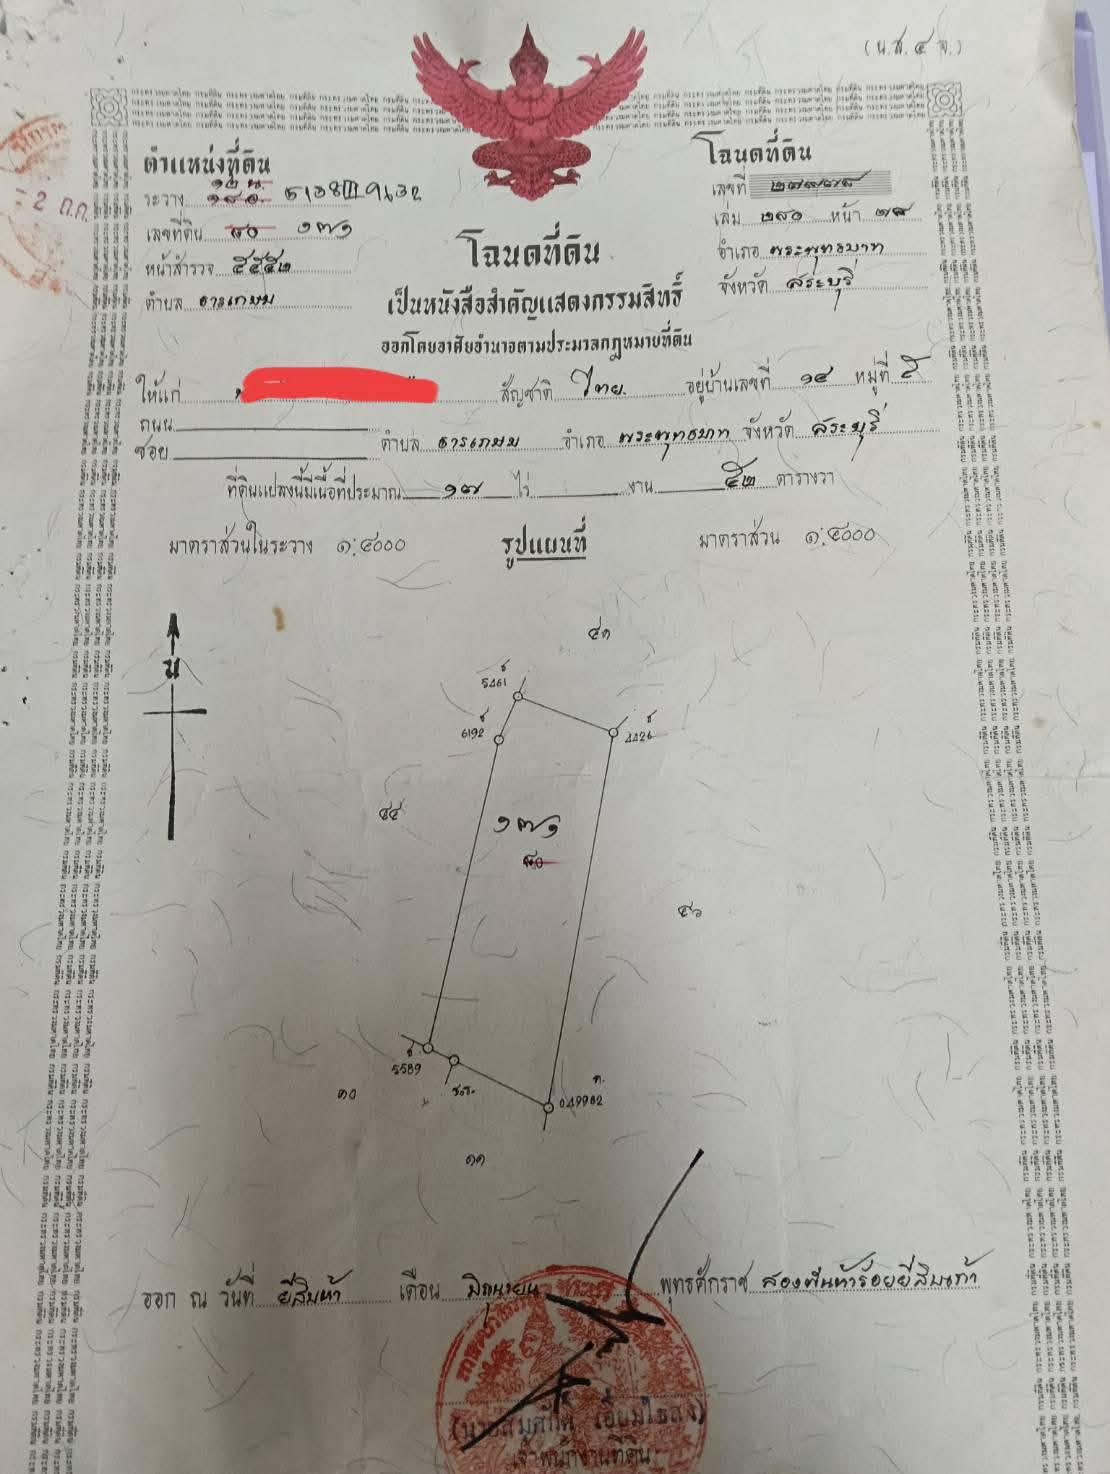 (น.ส.๔ จ.)
ตำแหน่งที่ดิน
ระวาง 5138III 9632
เลขที่ดิน ๘๐ ๑๓๑
หน้าสำรวจ ๕๕๕๒
ตำบล ธารเกษม
โฉนดที่ดิน
เลขที่ ๒๘๙๘๘
เล่ม ๒๙๐ หน้า ๗๘
อำเภอ พระพุทธบาท
จังหวัด สระบุรี
โฉนดที่ดิน
เป็นหนังสือสำคัญแสดงกรรมสิทธิ์
ออกโดยอาศัยอำนาจตามประมวลกฎหมายที่ดิน
ให้แก่ สัญชาติ ไทย อยู่บ้านเลขที่ ๑๔ หมู่ที่ ๕
ถนน
ซอย ตำบล ธารเกษม อำเภอ พระพุทธบาท จังหวัด สระบุรี
ที่ดินแปลงนี้มีเนื้อที่ประมาณ ๑๗ ไร่ งาน ๕๒ ตารางวา
มาตราส่วนในระวาง ๑:๔๐๐๐ รูปแผนที่ มาตราส่วน ๑:๔๐๐๐
น
๕๓
5461
6192
4426
๔๔
๑๓๑
๘๐
๕๖
5589
049982
๓๐
๓๓
ออก ณ วันที่ ยี่สิบห้า เดือน มิถุนายน พุทธศักราช สองพันห้าร้อยยี่สิบเก้า
(นายสมศักดิ์ เอี่ยมไธสง)
เจ้าพนักงานที่ดิน